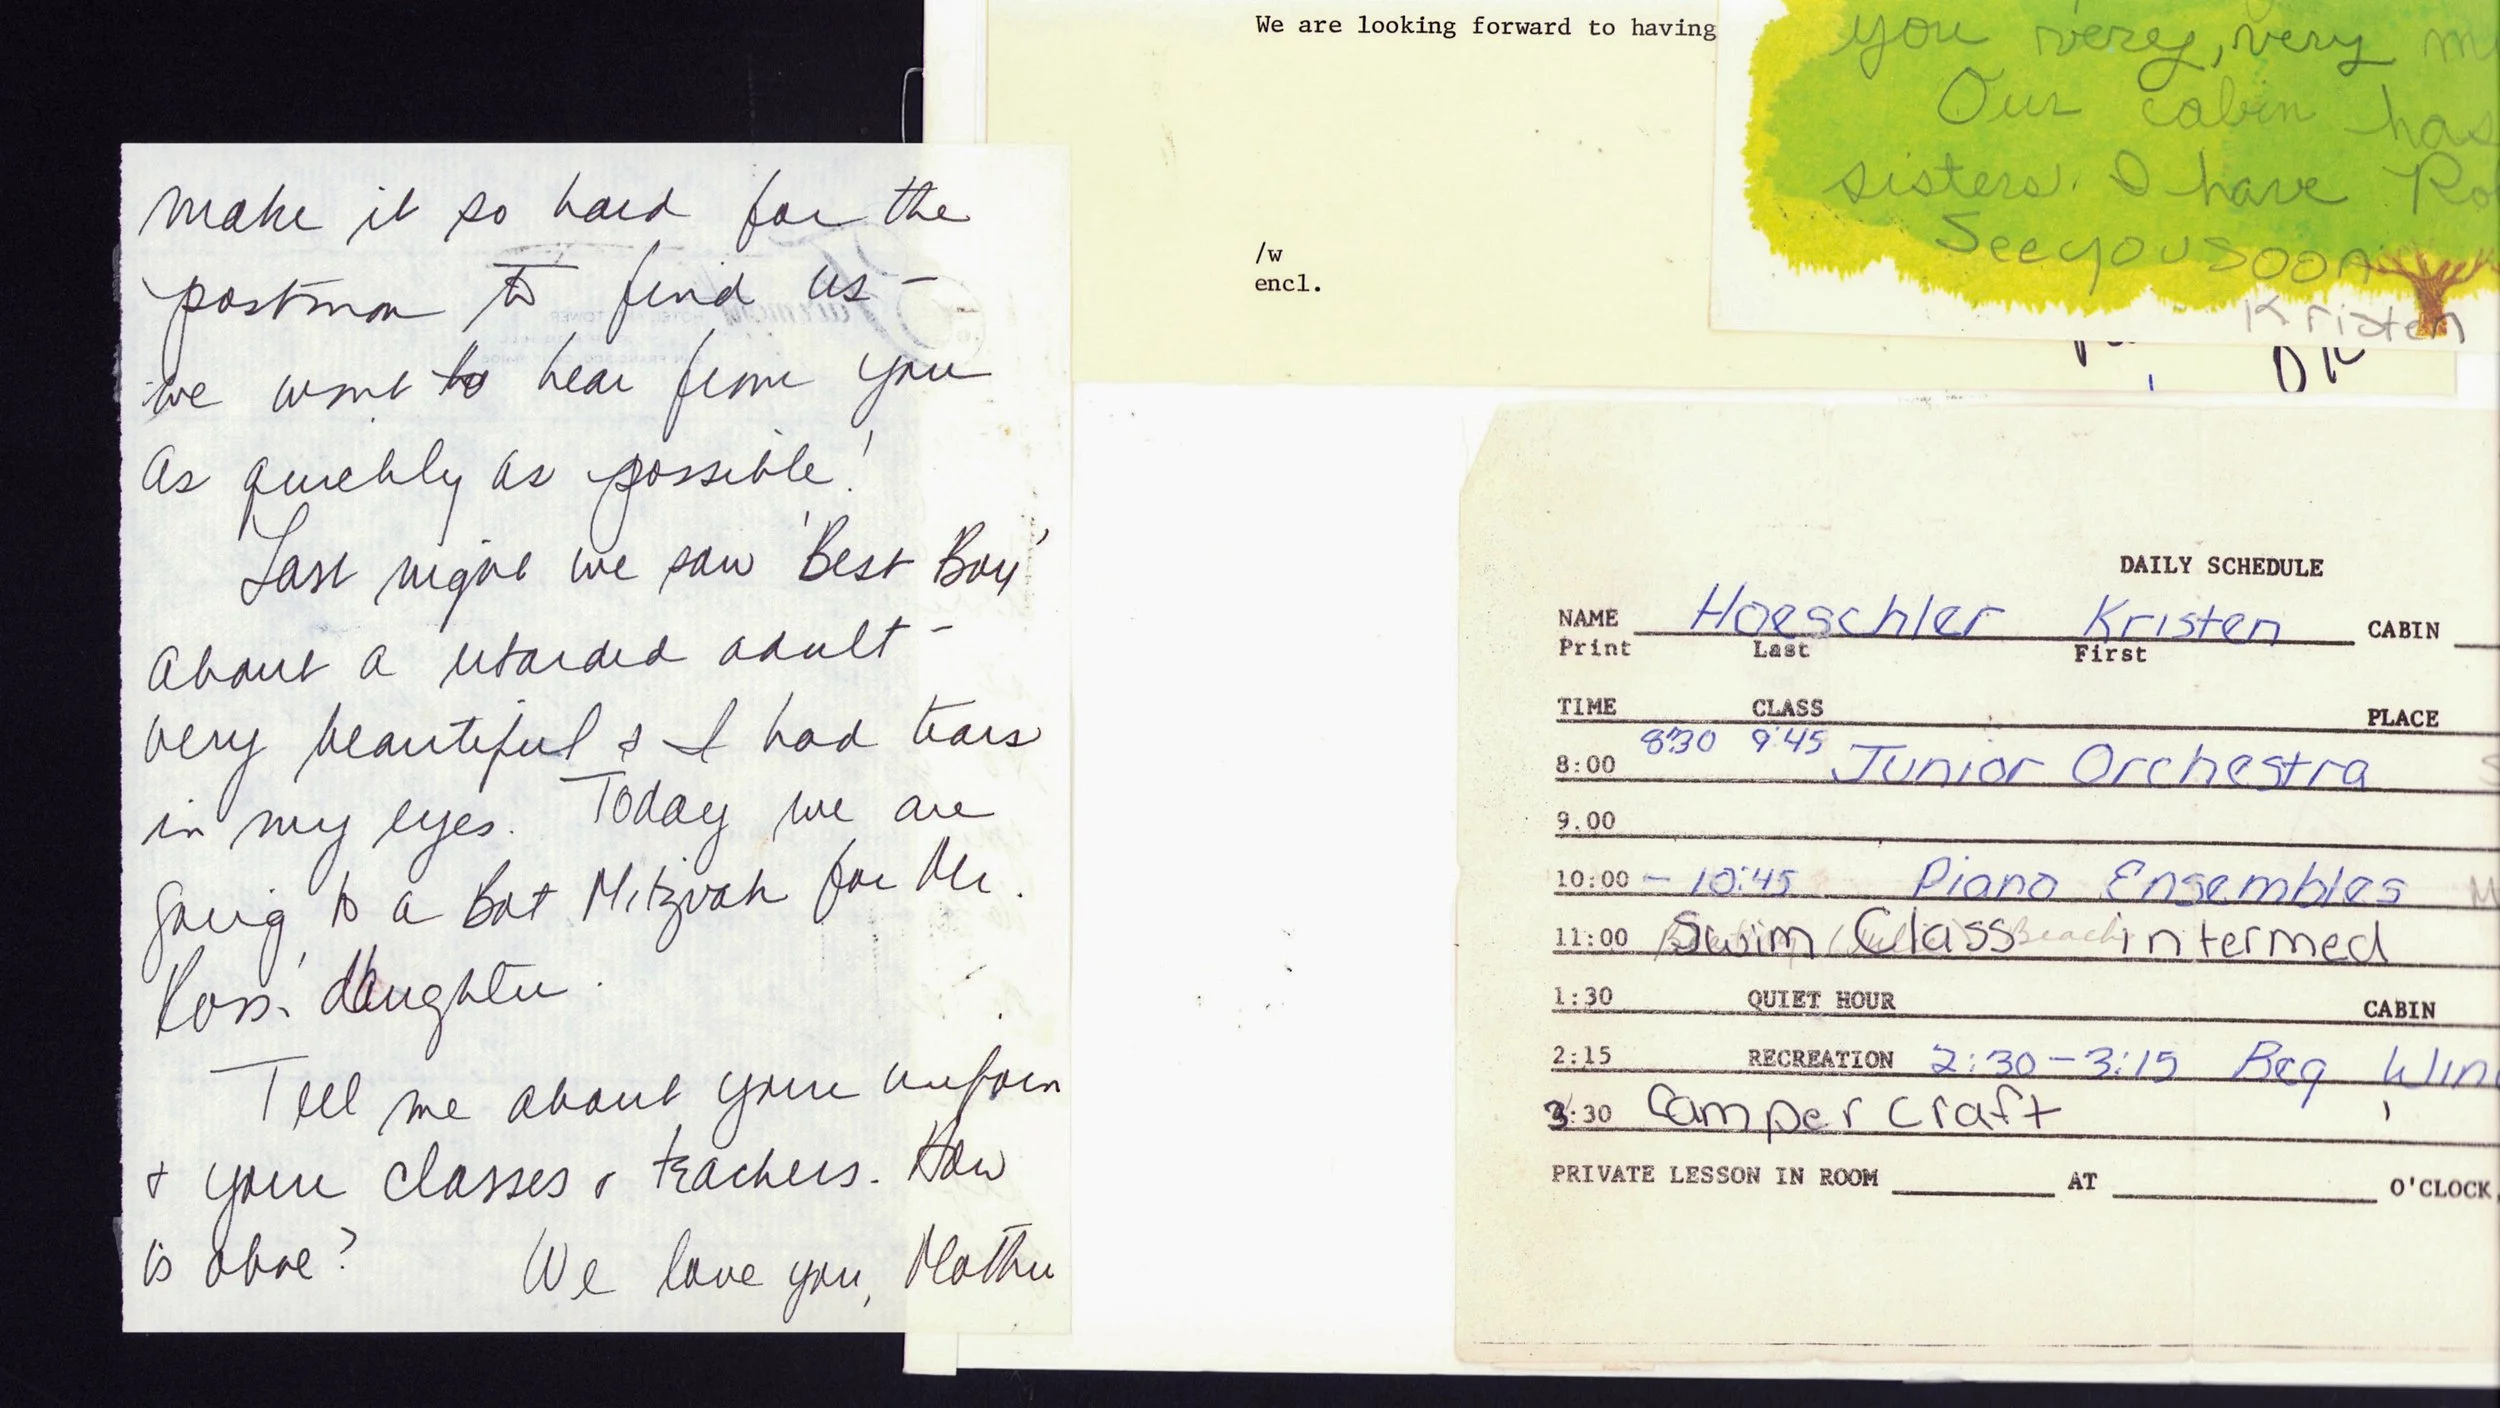 make it so hard for the
postman to find us -
we want to hear from you
as quickly as possible!
Last night we saw 'Best Boy'
about a retarded adult -
very beautiful & I had tears
in my eyes. Today we are
going to a Bat Mitzvah for Mr.
Ross' daughter.
Tell me about your uniform
& your classes & teachers. How
is oboe? We love you, Mother
We are looking forward to having
/w
encl.
you very, very
Our cabin has
sisters. I have
See you soon
Kristen
DAILY SCHEDULE
NAME Hoeschler Kristen CABIN
Print Last First
TIME CLASS PLACE
8:00 8:30 9:45 Junior Orchestra
9.00
10:00 - 10:45 Piano Ensembles
11:00 Swim Class intermed
1:30 QUIET HOUR CABIN
2:15 RECREATION 2:30-3:15 Beg
3:30 Camper craft
PRIVATE LESSON IN ROOM AT O'CLOCK